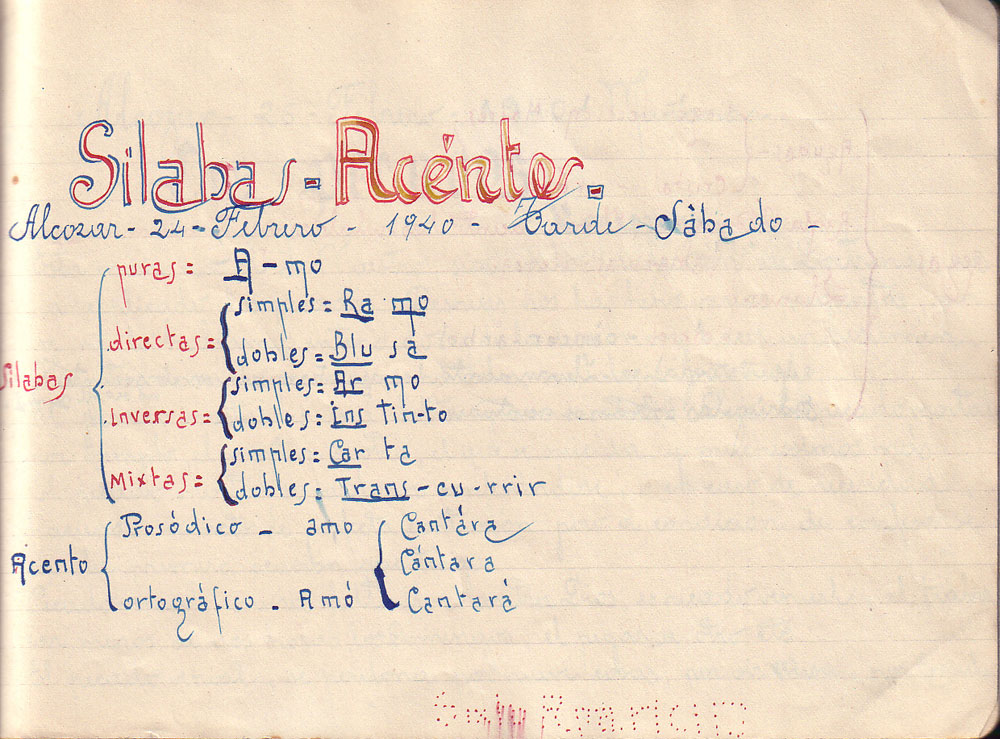 Silabas = Acéntos =
Alcozar - 24 - Febrero - 1940 - Tarde - Sàbado -
Silabas
puras = A - mo
directas =
simples = Ra mo
dobles = Blu sa
Inversas =
simples = Ar mo
dobles = Ins tinto
Mixtas =
simples = Car ta
dobles = Trans - cu - rrir
Acento
Prosódico - amo
ortográfico - Amó
Cantára
Cántara
Cantará